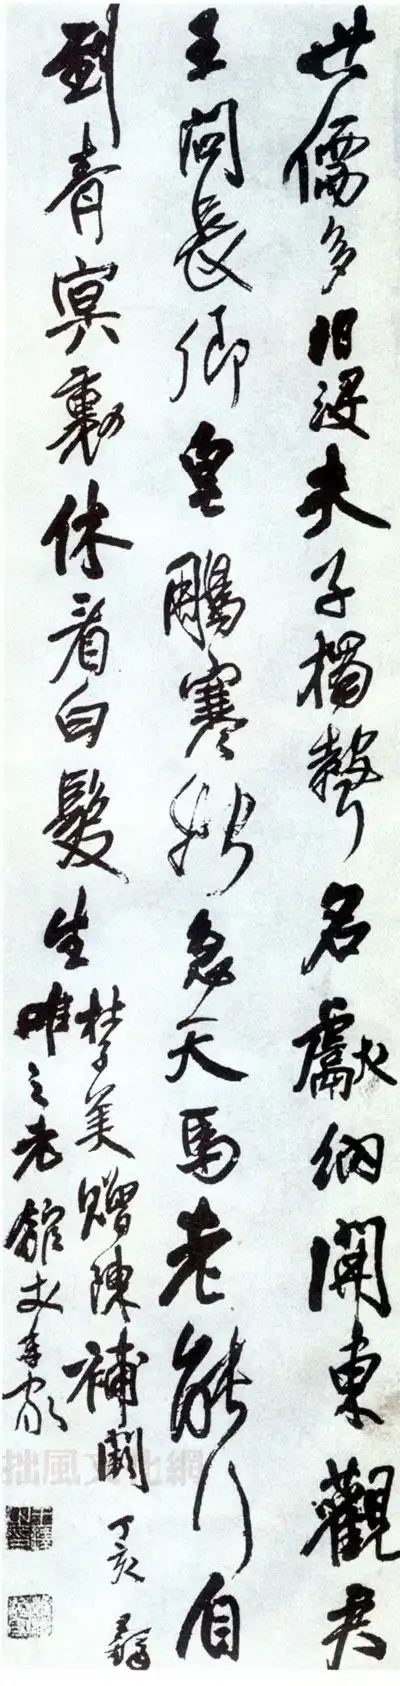 世儒多汩没夫子獨聲名獻納開東觀君
王問長卿皂鵰寒始急天馬老能行自
到青冥裏休看白髮生
杜子美贈陳補闕 丁亥
唯之老館丈
拙風文化網